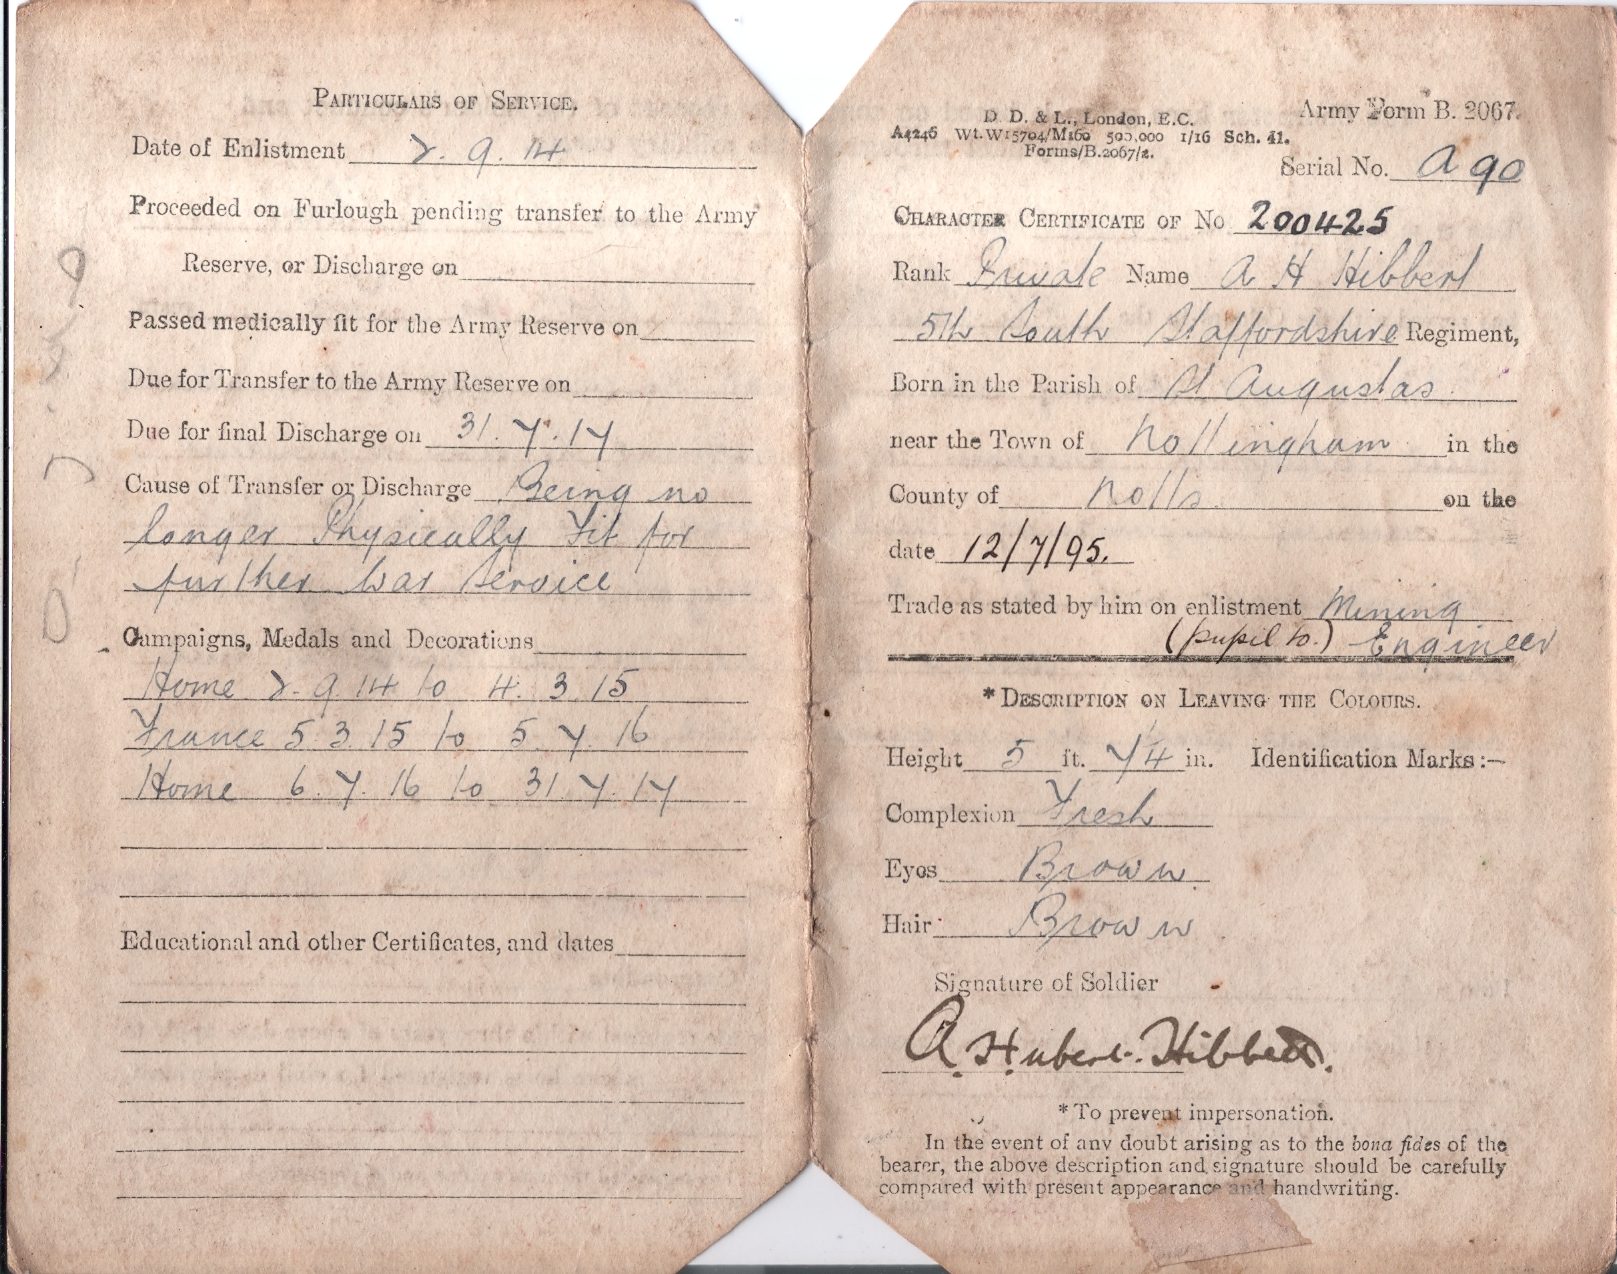 PARTICULARS OF SERVICE.
Date of Enlistment 2. 9. 14
Proceeded on Furlough pending transfer to the Army
Reserve, or Discharge on
Passed medically fit for the Army Reserve on
Due for Transfer to the Army Reserve on
Due for final Discharge on 31. 7. 17
Cause of Transfer or Discharge Being no
longer Physically Fit for
further War Service
Campaigns, Medals and Decorations
Home 2. 9. 14 to 4. 3. 15
France 5. 3. 15 to 5. 7. 16
Home 6. 7. 16 to 31. 7. 17
Educational and other Certificates, and dates
D. D. & L., London, E.C.
A4246 Wt.W15704/M160 500,000 1/16 Sch. 41.
Forms/B.2067/2.
Army Form B. 2067.
Serial No. A 90
CHARACTER CERTIFICATE OF No 200425
Rank Private Name A H Hibbert
5th South Staffordshire Regiment,
Born in the Parish of St Augustas
near the Town of Nottingham in the
County of Notts. on the
date 12/7/95.
Trade as stated by him on enlistment Mining
(pupil to.) Engineer
*DESCRIPTION ON LEAVING THE COLOURS.
Height 5 ft. 7 1/4 in. Identification Marks:—
Complexion Fresh
Eyes Brown
Hair Brown
Signature of Soldier
A. Hubert. Hibbert.
*To prevent impersonation.
In the event of any doubt arising as to the bona fides of the
bearer, the above description and signature should be carefully
compared with present appearance and handwriting.